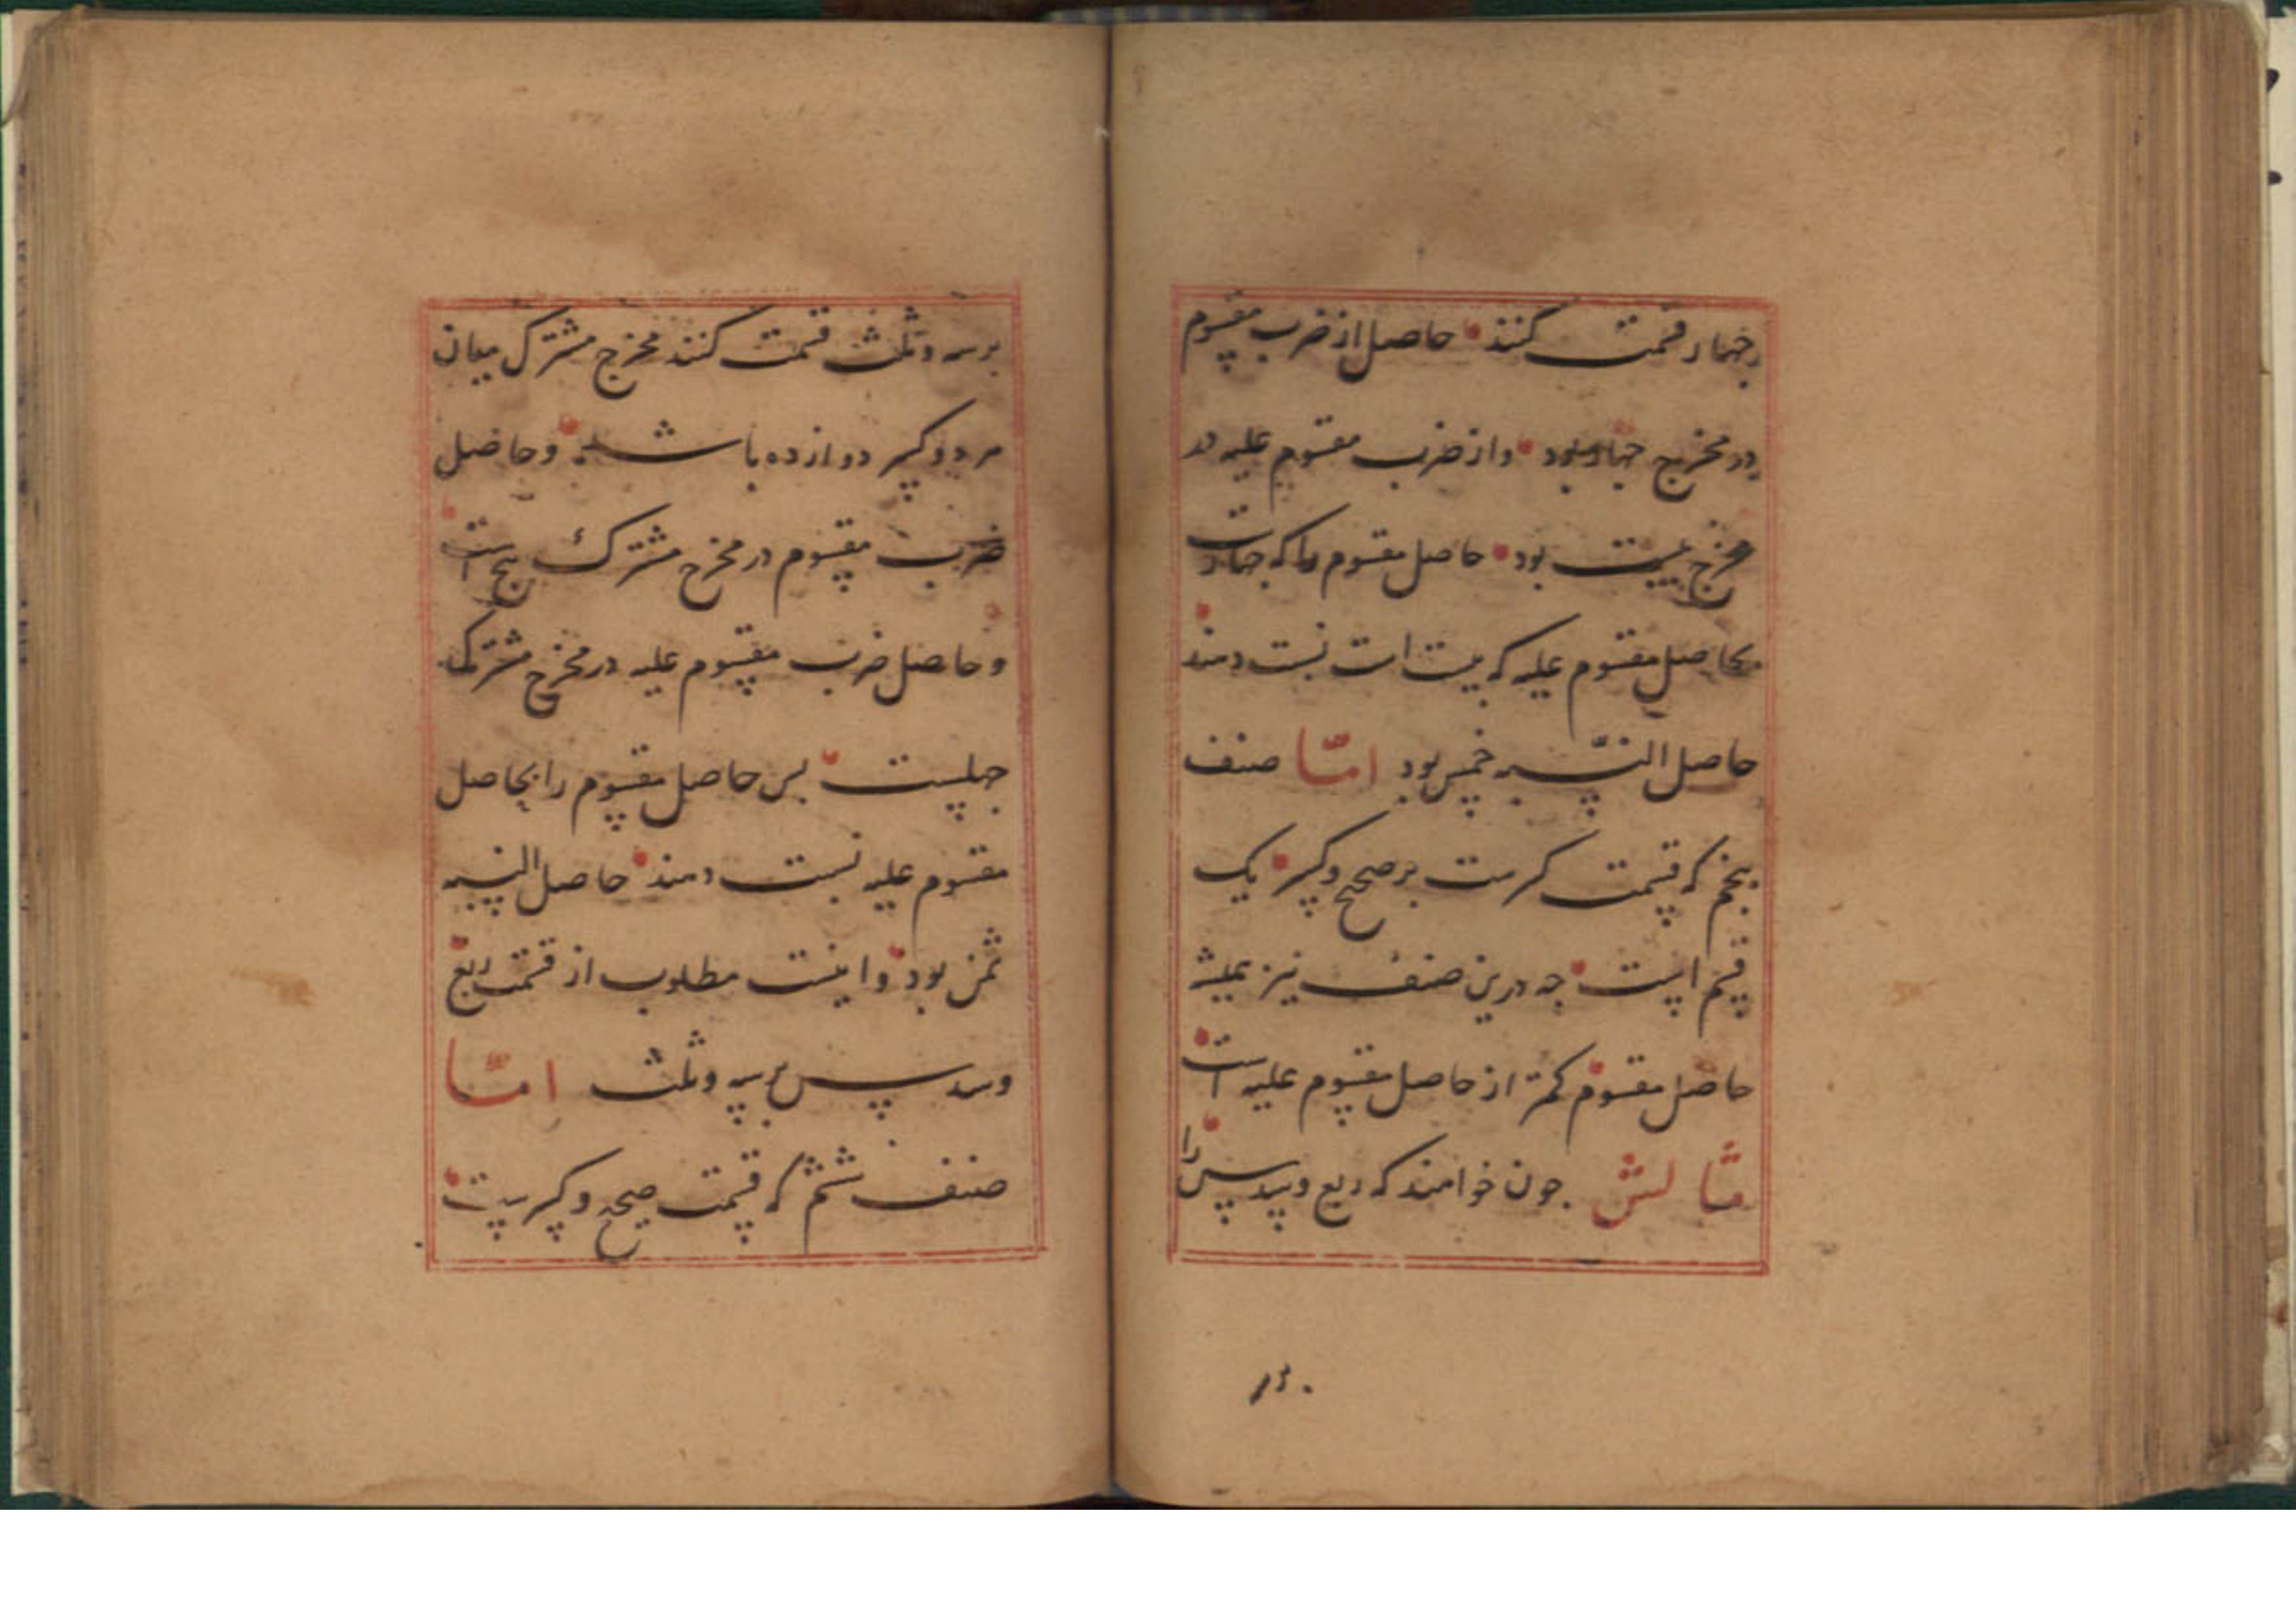 بر چهار قسمت کنند حاصل از ضرب مقسوم
در مخرج چهار بود و از ضرب مقسوم علیه در
مخرج بیست بود حاصل مقسوم را که چهارت
بحاصل مقسوم علیه که بیست است نسبت دهند
حاصل النسبه خمس بود امّا صنف
پنجم که قسمت کسرست بر صحیح و کسر یک
قسم است چه درین صنف نیز همیشه
حاصل مقسوم کمتر از حاصل مقسوم علیه است
مثالش چون خواهند که ربع و سدس را
بر سه و ثلث قسمت کنند مخرج مشترک میان
هر دو کسر دوازده باشد و حاصل
ضرب مقسوم در مخرج مشترک پنج است
و حاصل ضرب مقسوم علیه در مخرج مشترک
چهلست پس حاصل مقسوم را بحاصل
مقسوم علیه نسبت دهند حاصل النسبه
ثمن بود و اینست مطلوب از قسمت ربع
و سدس بر سه و ثلث امّا
صنف ششم که قسمت صحیح و کسرست